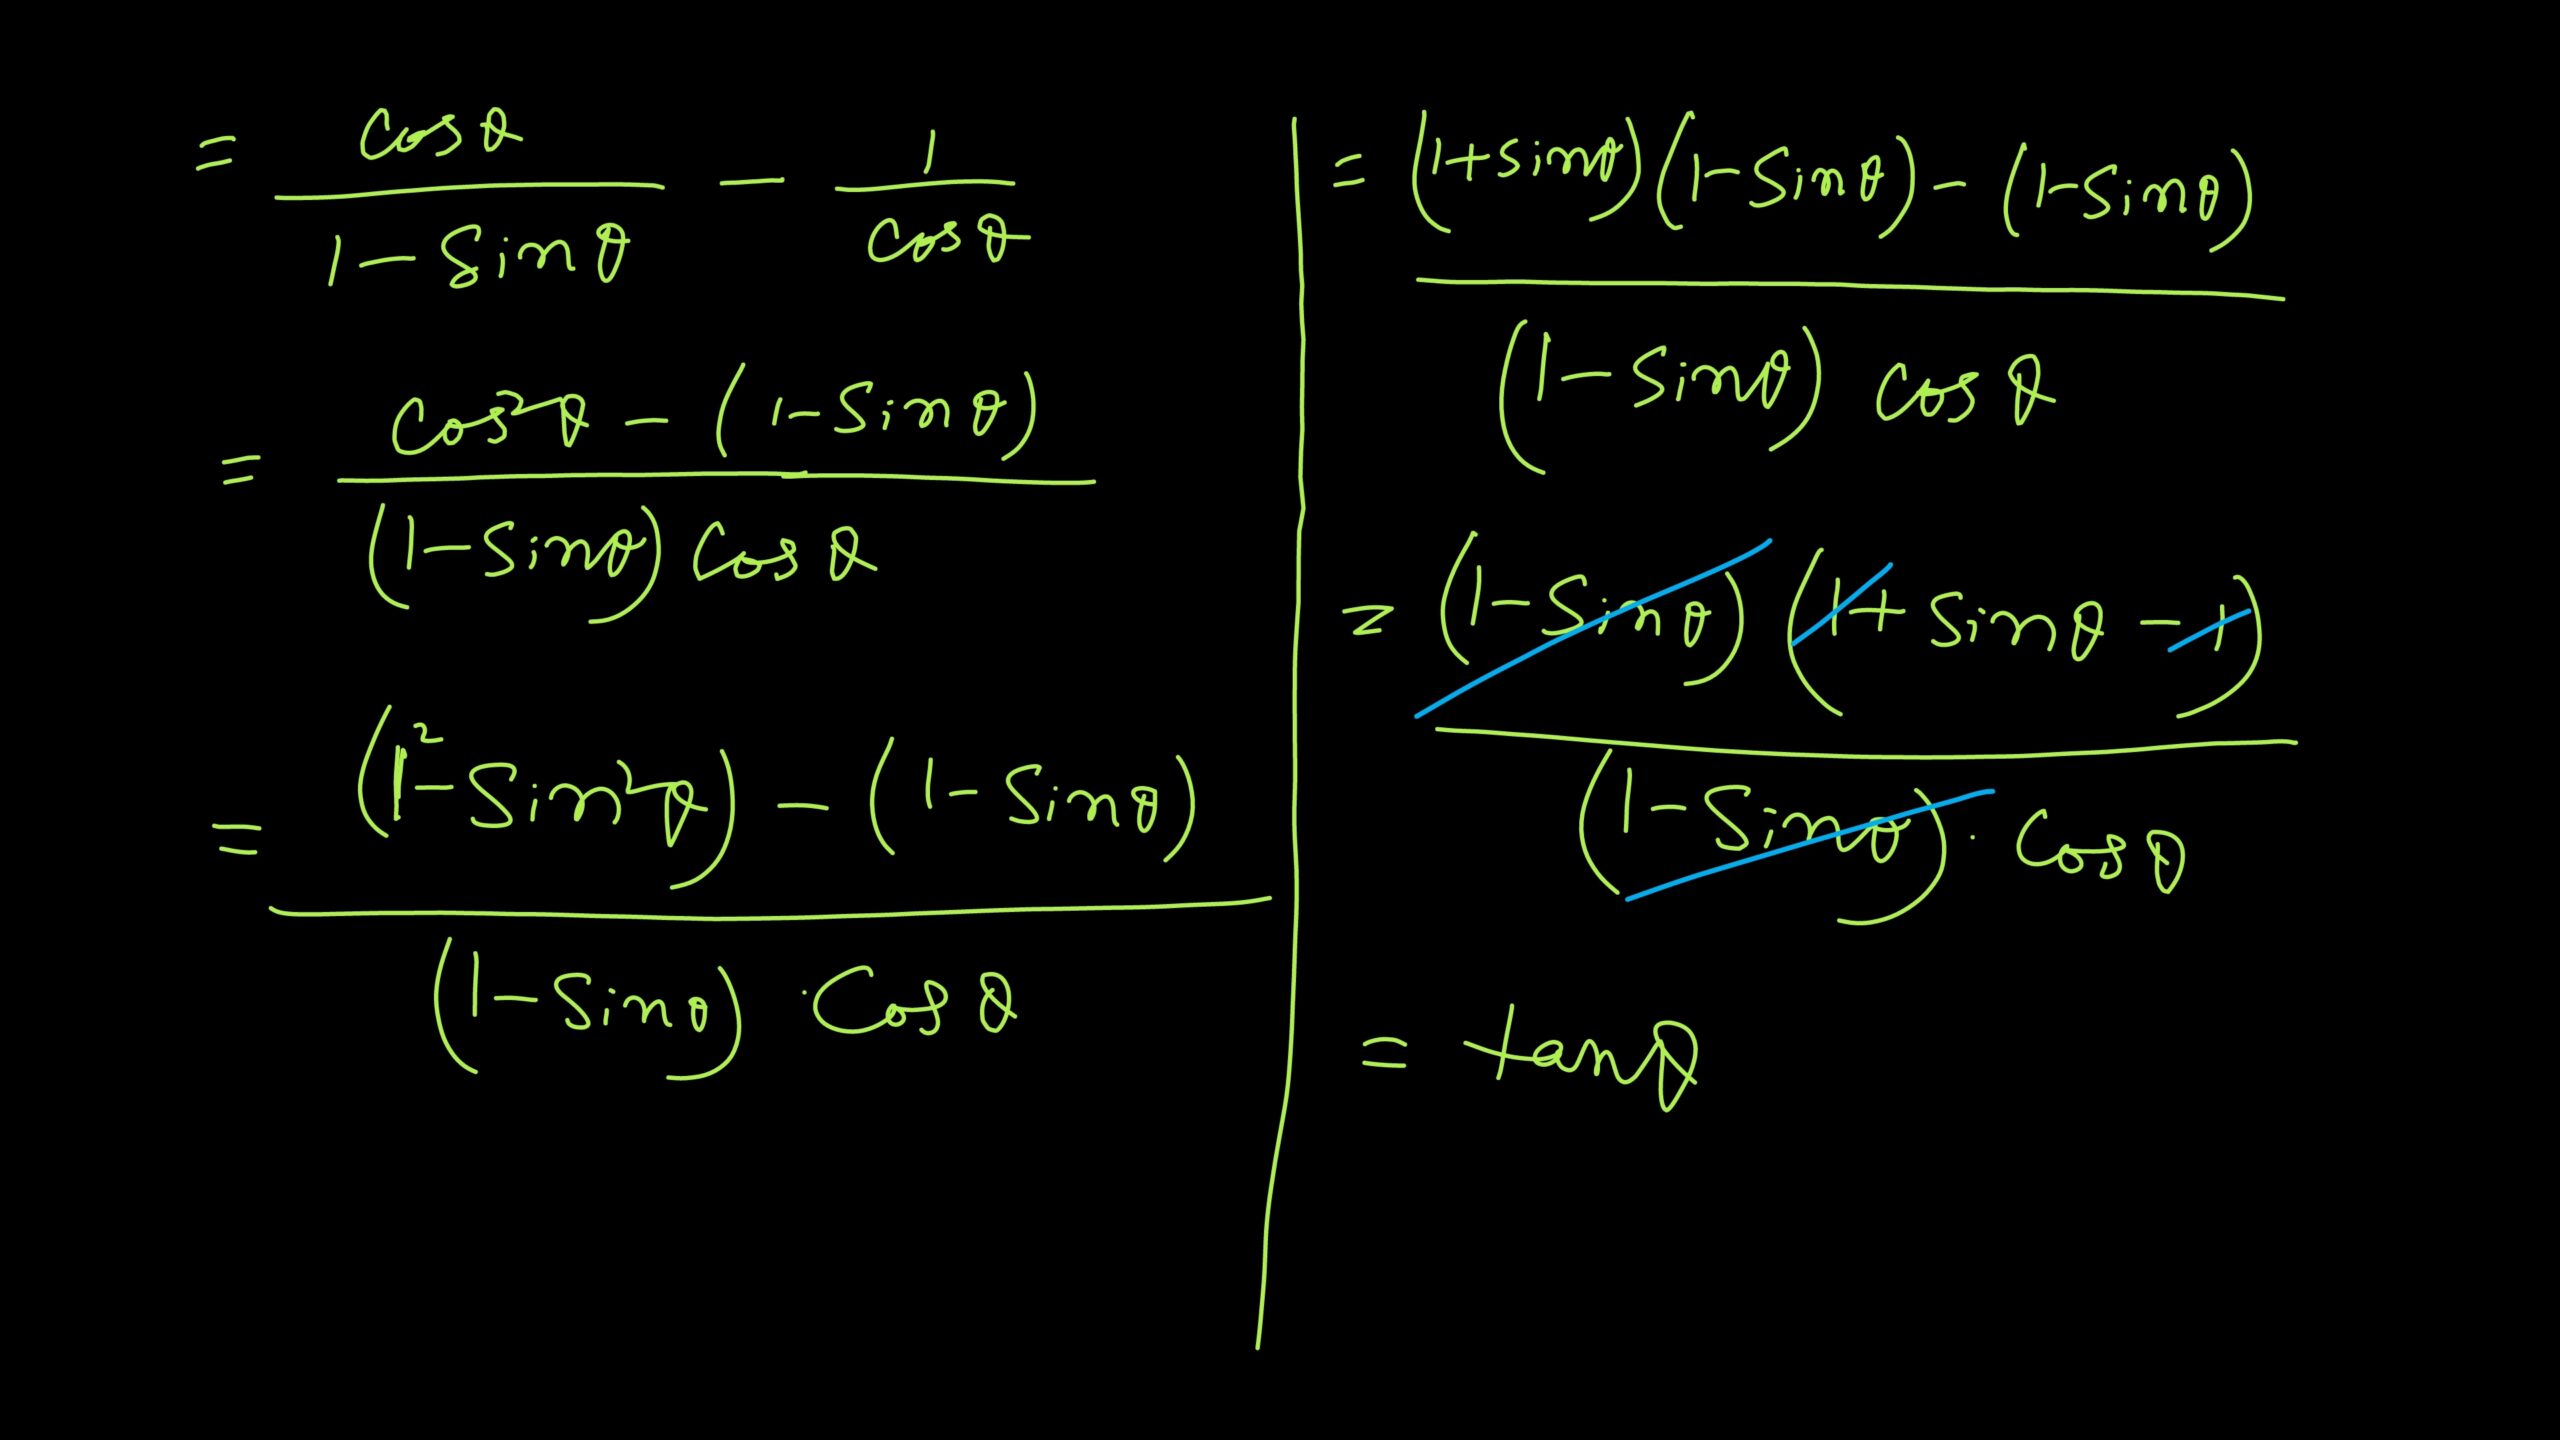 = cosθ / 1 - Sinθ - 1 / cosθ
= Cos²θ - (1 - Sinθ) / (1 - Sinθ) Cosθ
= (1² - Sin²θ) - (1 - Sinθ) / (1 - Sinθ) · Cosθ
= (1 + Sinθ)(1 - Sinθ) - (1 - Sinθ) / (1 - Sinθ) cosθ
= (1 - Sinθ)(1 + Sinθ - 1) / (1 - Sinθ) · Cosθ
= tanθ